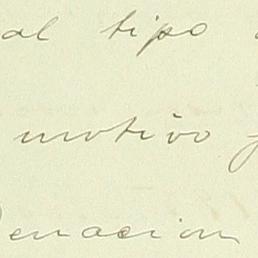 al tipo
motivo
enacion